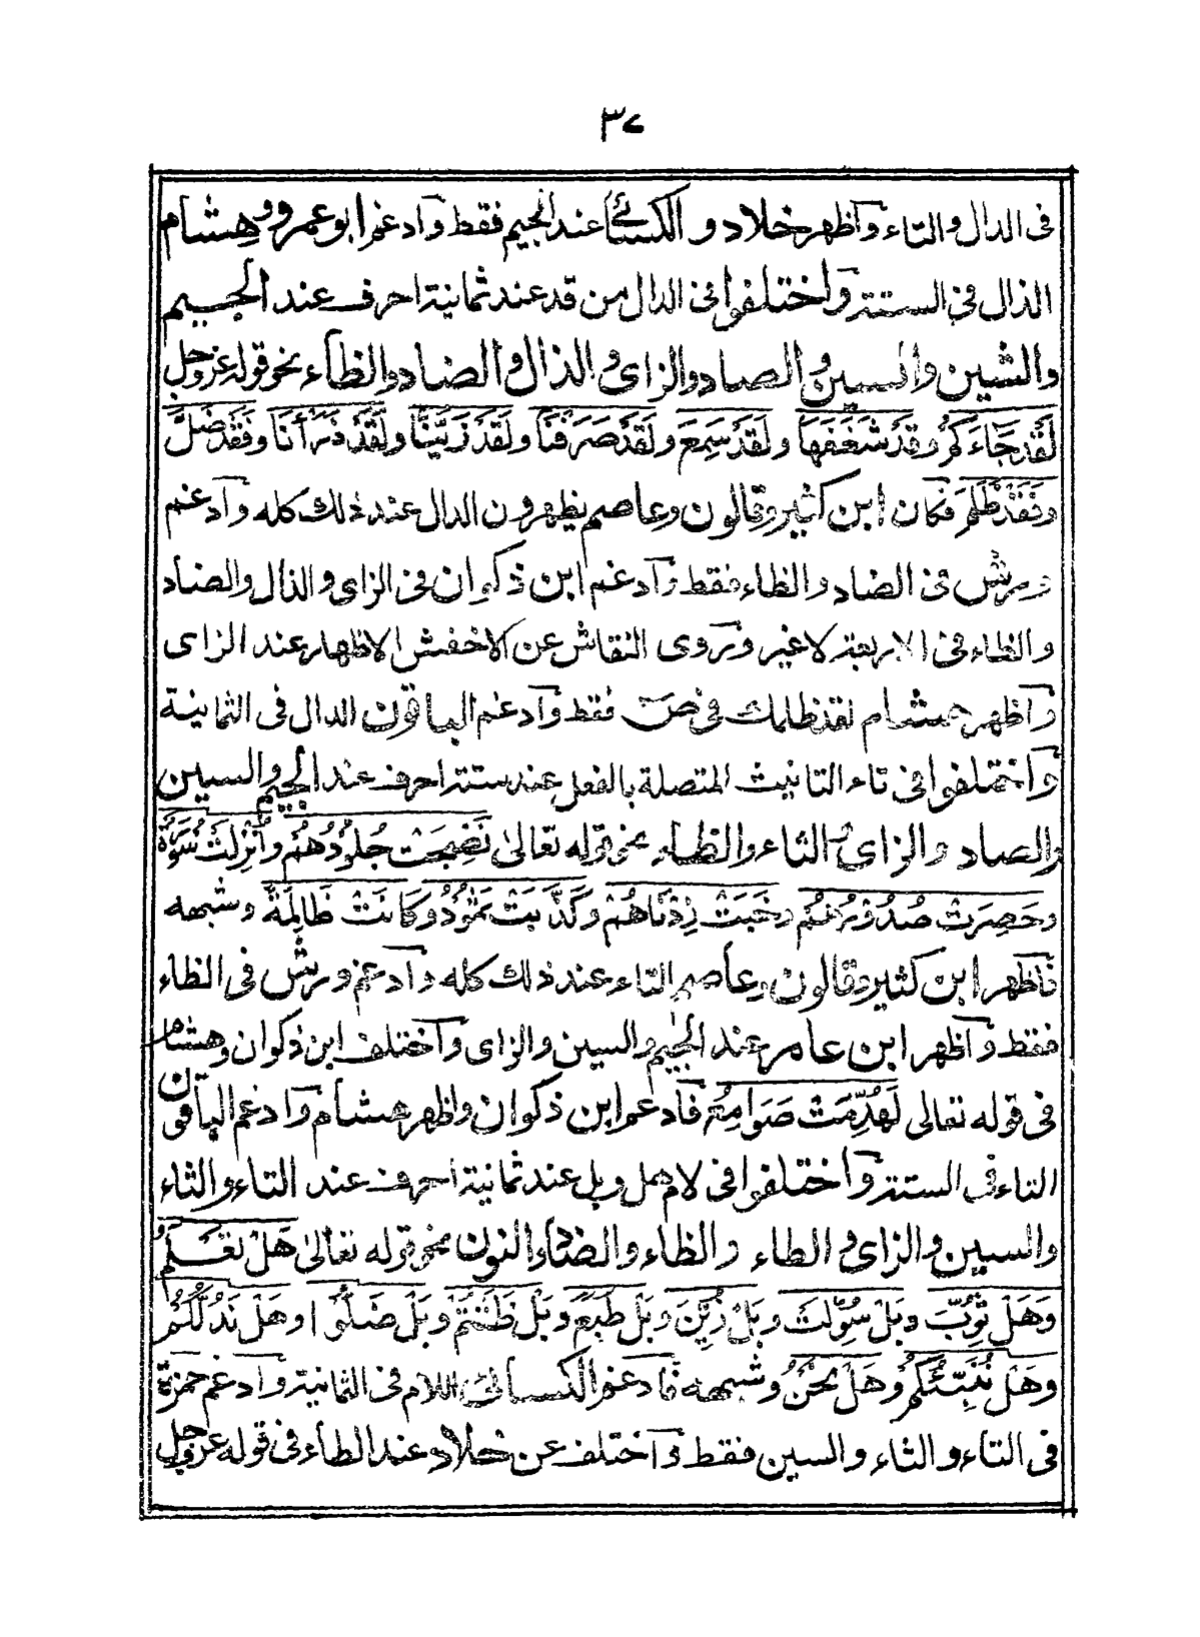 ٣٧
فى الدال والتاء وآظهر خلاد و الكسائى عند الجيم فقط وآدغم ابو عمرو وهشام
الذال فى الستة وآختلفوا فى الدال من قد عند ثمانية احرف عند الجيم
والشين والسين و الصاد والزاى و الذال و الضاد والظاء نحو قوله عز وجل
لَقَدْ جَاءَكُمْ وقَدْ شَغَفَهَا ولَقَدْ سَمِعَ ولَقَدْ صَرَفْنَا ولَقَدْ زَيَّنَّا ولَقَدْ ذَرَأْنَا وفَقَدْ ضَلَّ
وفَقَدْ ظَلَمَ فكان ابن كثير وقالون وعاصم يظهرون الدال عند ذلك كله وآدغم
ورش فى الضاد والظاء فقط وآدغم ابن ذكوان فى الزاى والذال والضاد
والظاء فى الاربعة لا غير وروى النقاش عن الاخفش الاظهار عند الزاى
وآظهر هشام لقد ظلمك فى صٓ فقط وآدغم الباقون الدال فى الثمانية
وآختلفوا فى تاء التانيث المتصلة بالفعل عند ستة احرف عند الجيم والسين
والصاد والزاى و الثاء والظاء نحو قوله تعالىٰ نَضِجَتْ جُلُوْدُهُمْ واُنْزِلَتْ سُوْرَةٌ
وحَصِرَتْ صُدُوْرُهُمْ وخَبَتْ زِدْنَاهُمْ وكَذَّبَتْ ثَمُوْدُ وكَانَتْ ظَالِمَةً وشبهه
فآظهر ابن كثير وقالون وعاصم التاء عند ذلك كله وآدغم ورش فى الظاء
فقط وآظهر ابن عامر عند الجيم والسين والزاى وآختلف ابن ذكوان وهشام
فى قوله تعالى لَهُدِّمَتْ صَوَامِعُ فآدغم ابن ذكوان واظهر هشام وآدغم الباقون
التاء فى الستة وآختلفوا فى لام هل وبل عند ثمانية احرف عند التاء والثاء
والسين والزاى و الطاء والظاء والضاد والنون نحو قوله تعالىٰ هَلْ تَعْلَمُ
وَهَلْ ثُوِّبَ وبَلْ سَوَّلَتْ وبَلْ زُيِّنَ وبَلْ طَبَعَ وبَلْ ظَنَنْتُمْ وبَلْ ضَلُّوْا وهَلْ نَدُلُّكُمْ
وهَلْ نُنَبِّئُكُمْ وهَلْ نَحْنُ وشبهه فآدغم الكسائى اللام فى الثمانية وآدغم حمزة
فى التاء و الثاء والسين فقط وآختلف عن خلاد عند الطاء فى قوله عز وجل